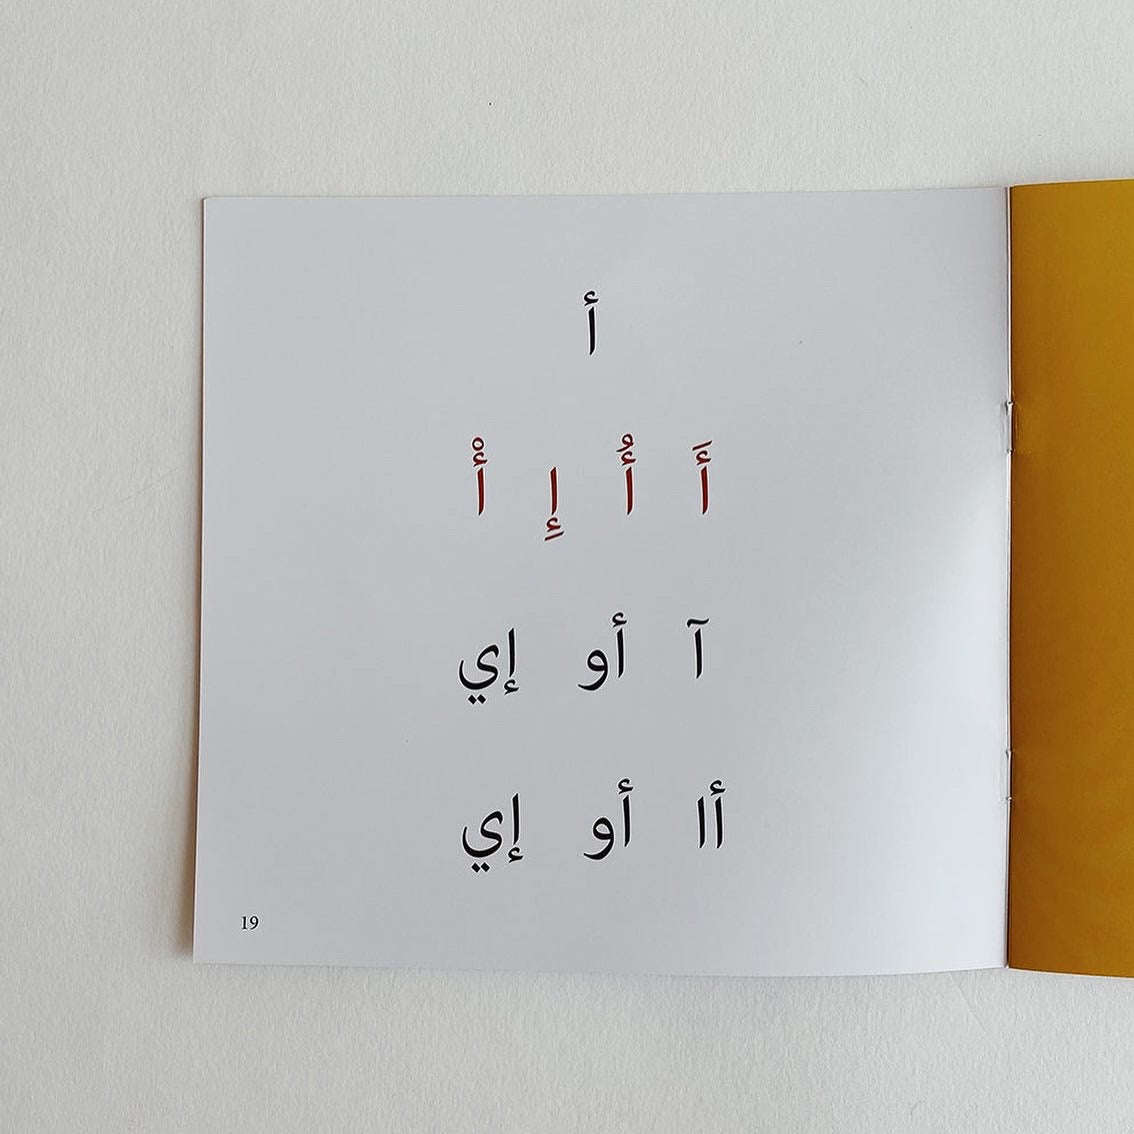 أ
أَ أُ إِ أْ
آ أو إي
أا أو إي
19